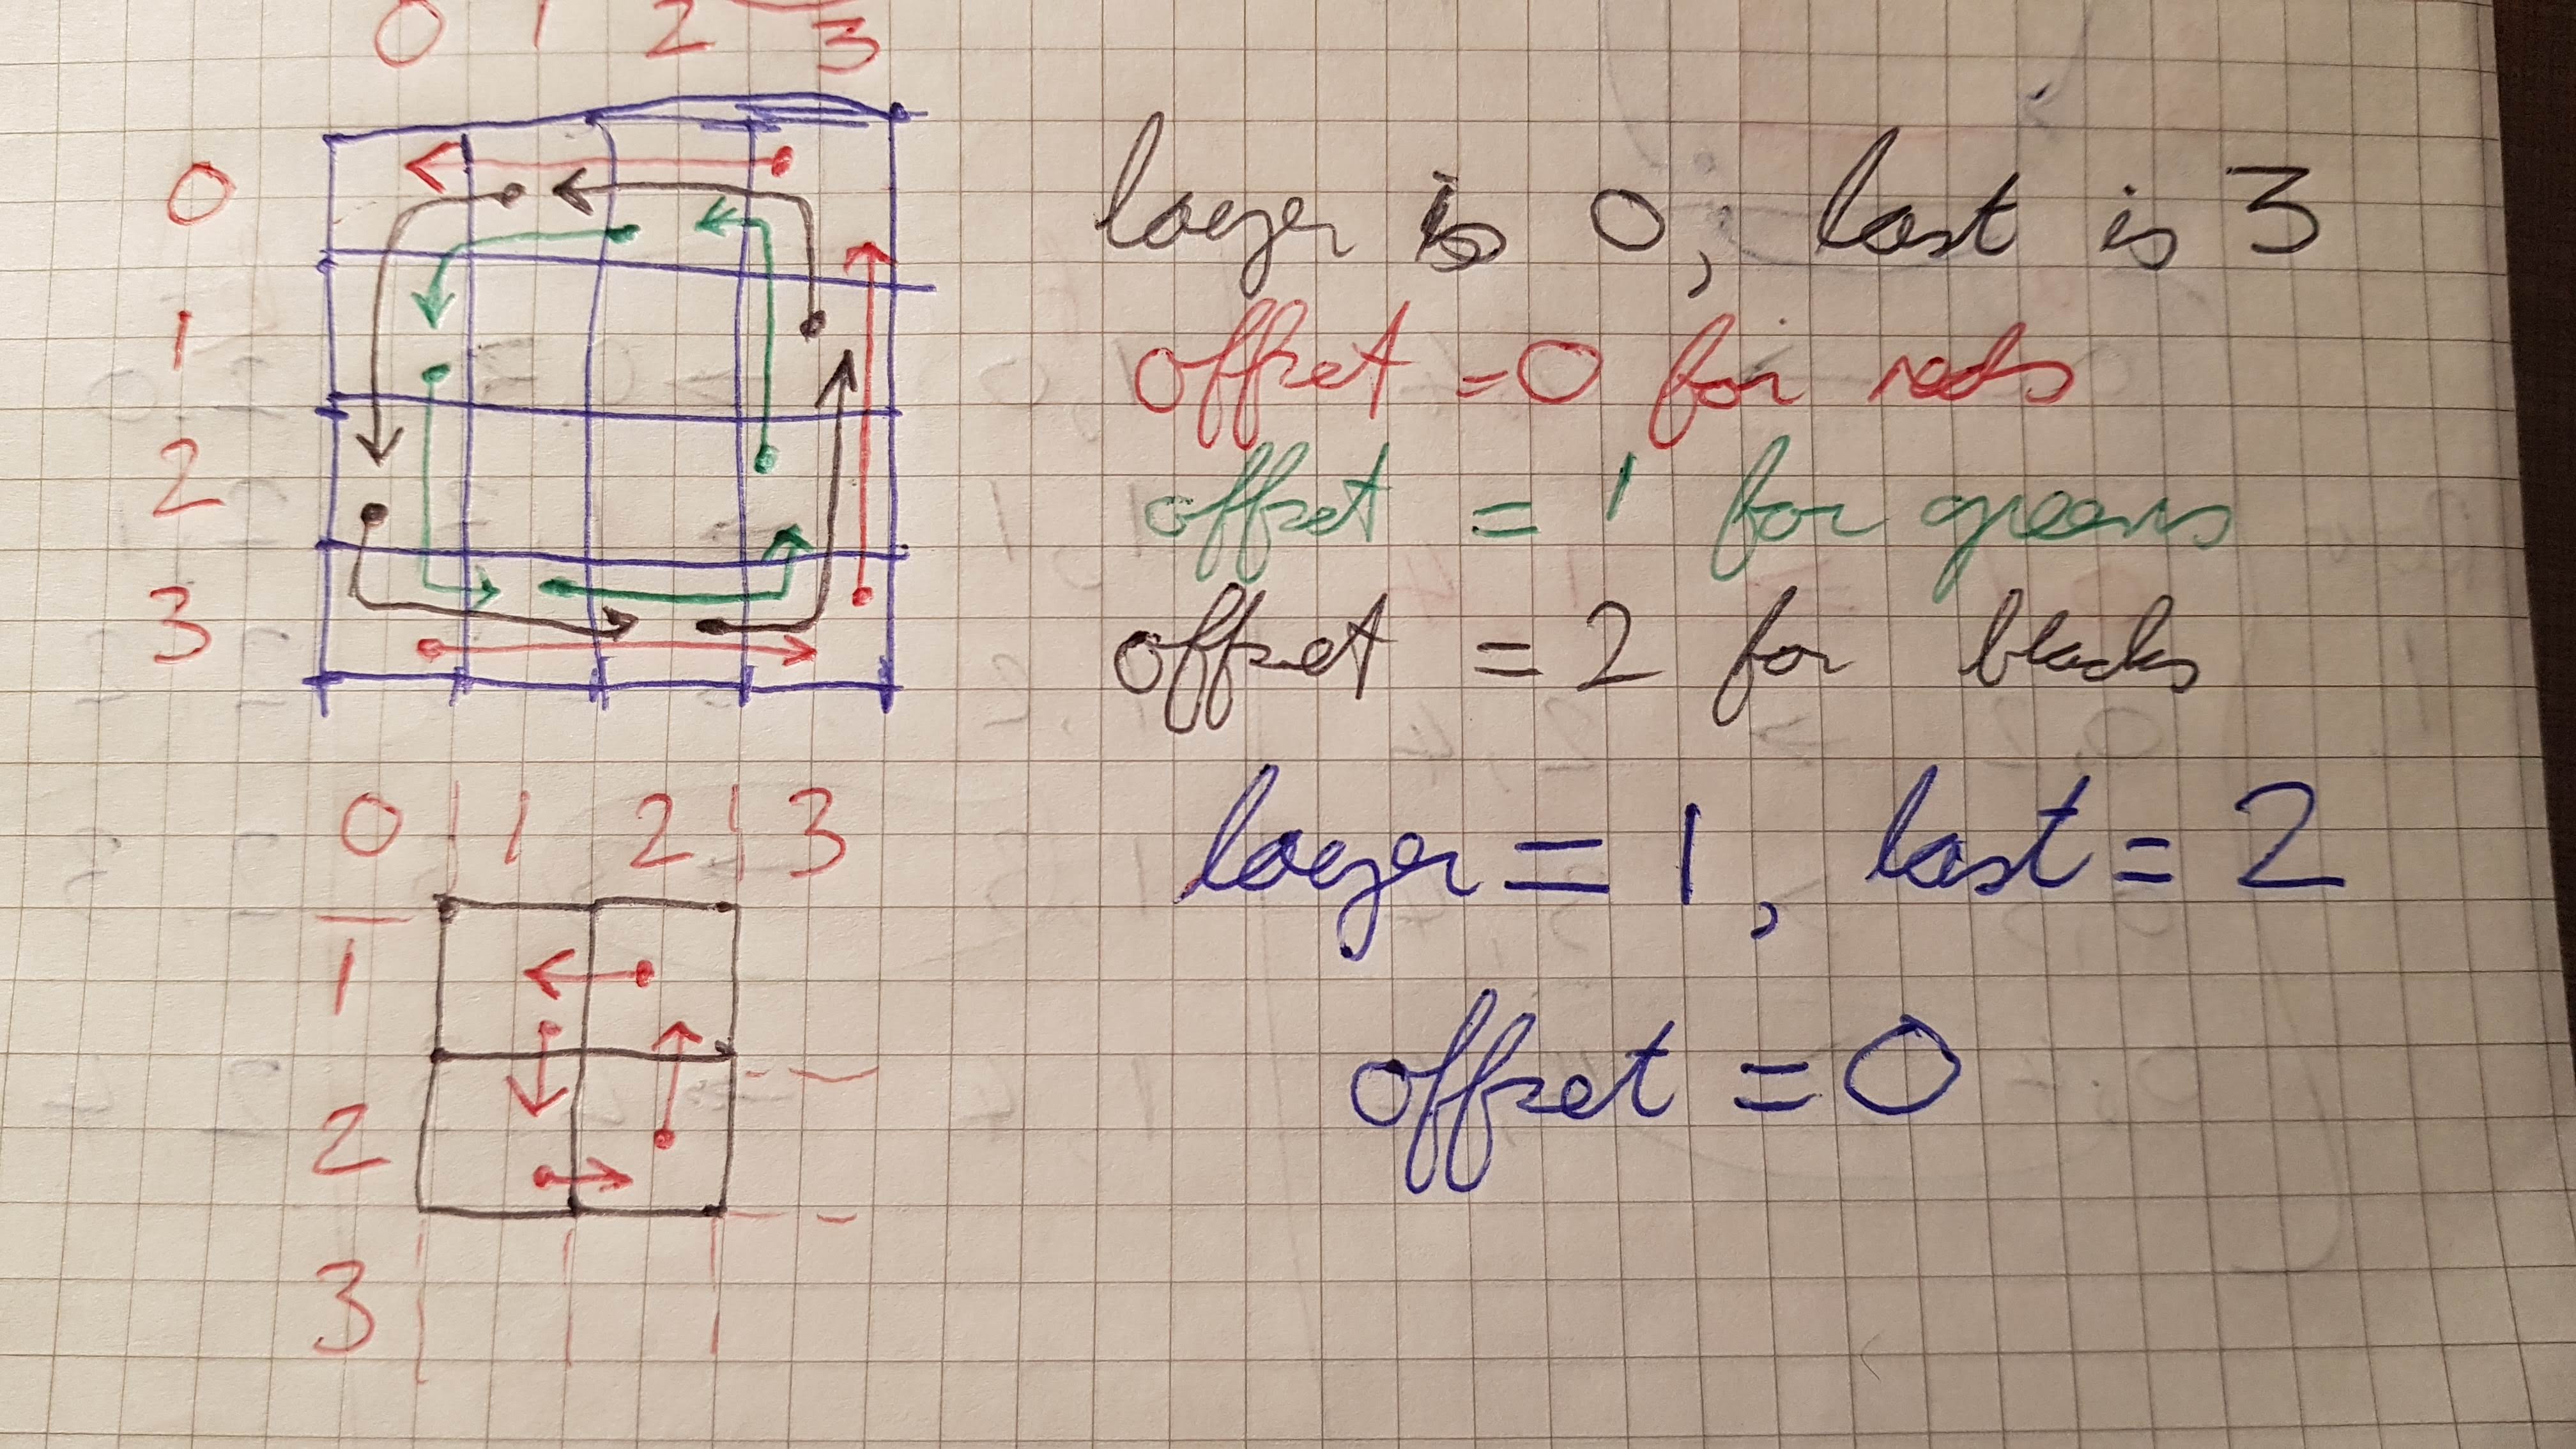 0 1 2 3
0
layer is 0, last is 3
1
offset =0 for reds
2
offset = 1 for greens
3
offset = 2 for blacks
0 1 2 3
layer = 1, last = 2
1
offset = 0
2
3